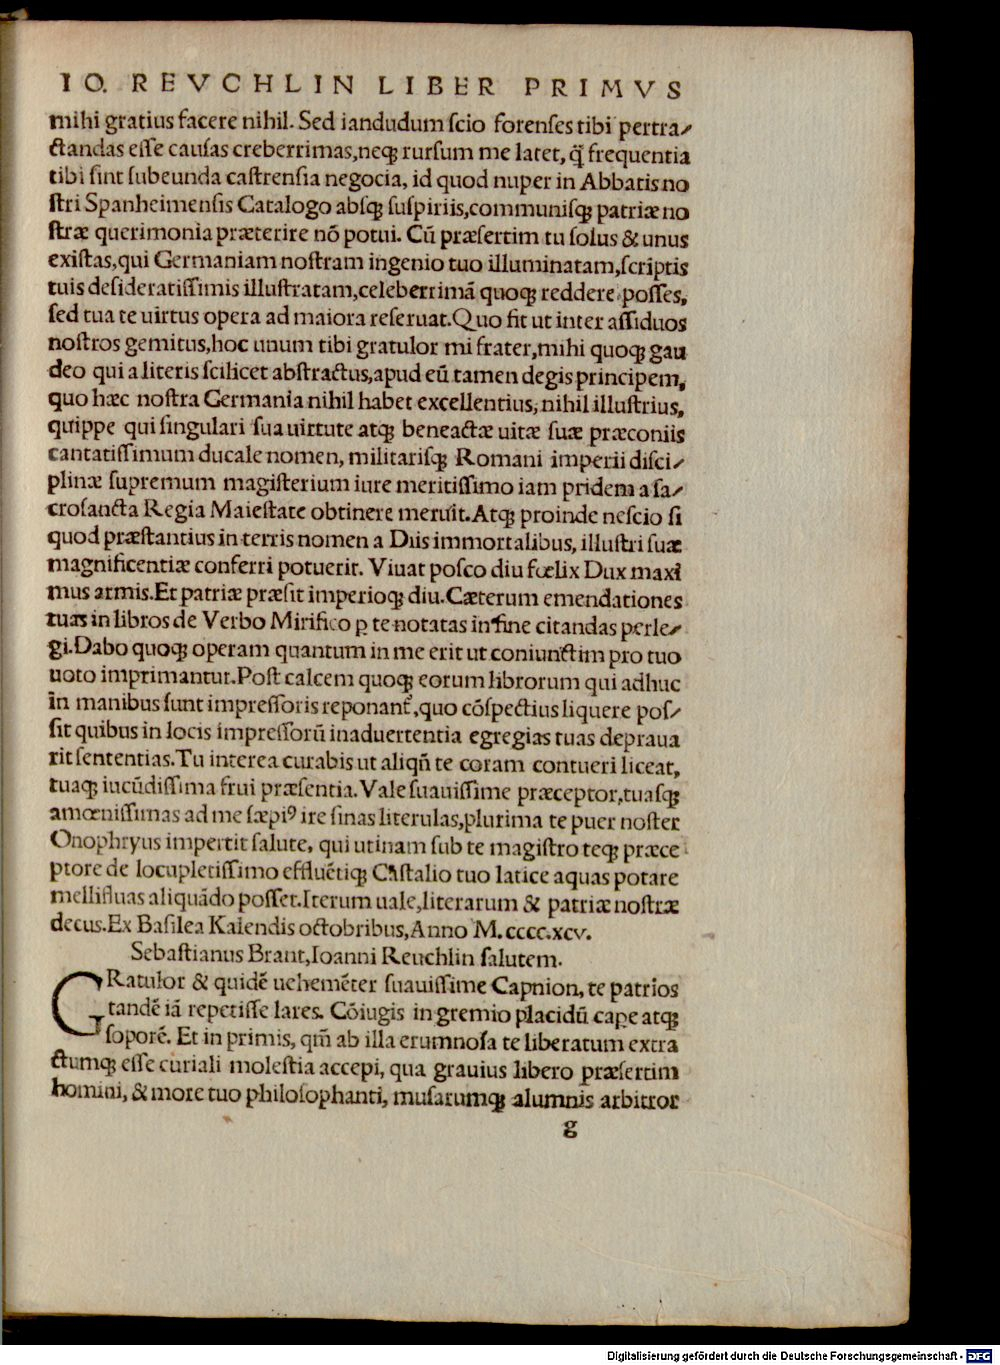 IO. REVCHLIN LIBER PRIMVS
mihi gratius facere nihil. Sed iandudum ſcio forenſes tibi pertra⸗
ctandas eſſe cauſas creberrimas,neqꝫ rurſum me latet, q̃ frequentia
tibi ſint ſubeunda caſtrenſia negocia, id quod nuper in Abbatis no
ſtri Spanheimenſis Catalogo abſqꝫ ſuſpiriis,communiſqꝫ patriæ no
ſtræ querimonia præterire nõ potui. Cũ præſertim tu ſolus & unus
exiſtas,qui Germaniam noſtram ingenio tuo illuminatam,ſcriptis
tuis deſideratiſſimis illuſtratam,celeberrimã quoqꝫ reddere poſſes,
ſed tua te uirtus opera ad maiora reſeruat.Quo fit ut inter aſſiduos
noſtros gemitus,hoc unum tibi gratulor mi frater,mihi quoqꝫ gau
deo qui a literis ſcilicet abſtractus,apud eũ tamen degis principem,
quo hæc noſtra Germania nihil habet excellentius, nihil illuſtrius,
quippe qui ſingulari ſua uirtute atqꝫ beneactæ uitæ ſuæ præconiis
cantatiſſimum ducale nomen, militariſqꝫ Romani imperii diſci⸗
plinæ ſupremum magiſterium iure meritiſſimo iam pridem a ſa⸗
croſancta Regia Maieſtate obtinere meruit.Atqꝫ proinde neſcio ſi
quod præſtantius in terris nomen a Diis immortalibus, illuſtri ſuæ
magnificentiæ conferri potuerit. Viuat poſco diu fœlix Dux maxi
mus armis.Et patriæ præſit imperioqꝫ diu.Cæterum emendationes
tuas in libros de Verbo Mirifico ꝑ te notatas in fine citandas perle⸗
gi.Dabo quoqꝫ operam quantum in me erit ut coniunctim pro tuo
uoto imprimantur.Poſt calcem quoqꝫ eorum librorum qui adhuc
in manibus ſunt impreſſoris reponant᷑,quo cõſpectius liquere poſ⸗
ſit quibus in locis impreſſorũ inaduertentia egregias tuas deprauа
rit ſententias.Tu interea curabis ut aliqñ te coram contueri liceat,
tuaqꝫ iucũdiſſima frui præſentia.Vale ſuauiſſime præceptor,tuaſqꝫ
amœniſſimas ad me ſæpiꝰ ire ſinas literulas,plurima te puer noſter
Onophryus impertit ſalute, qui utinam ſub te magiſtro teqꝫ præce
ptore de locupletiſſimo effluẽtiqꝫ Caſtalio tuo latice aquas potare
mellifluas aliquãdo poſſet.Iterum uale,literarum & patriæ noſtræ
decus.Ex Baſilea Kalendis octobribus,Anno M.cccc.xcv.
Sebaſtianus Brant,Ioanni Reuchlin ſalutem.
GRatulor & quidẽ uehemẽter ſuauiſſime Capnion, te patrios
tandẽ iã repetiſſe lares. Cõiugis in gremio placidũ cape atqꝫ
ſoporẽ. Et in primis, qm̃ ab illa erumnoſa te liberatum extra
ctumqꝫ eſſe curiali moleſtia accepi, qua grauius libero præſertim
homini, & more tuo philoſophanti, muſarumqꝫ alumnis arbitror
g
Digitalisierung gefördert durch die Deutsche Forschungsgemeinschaft - DFG